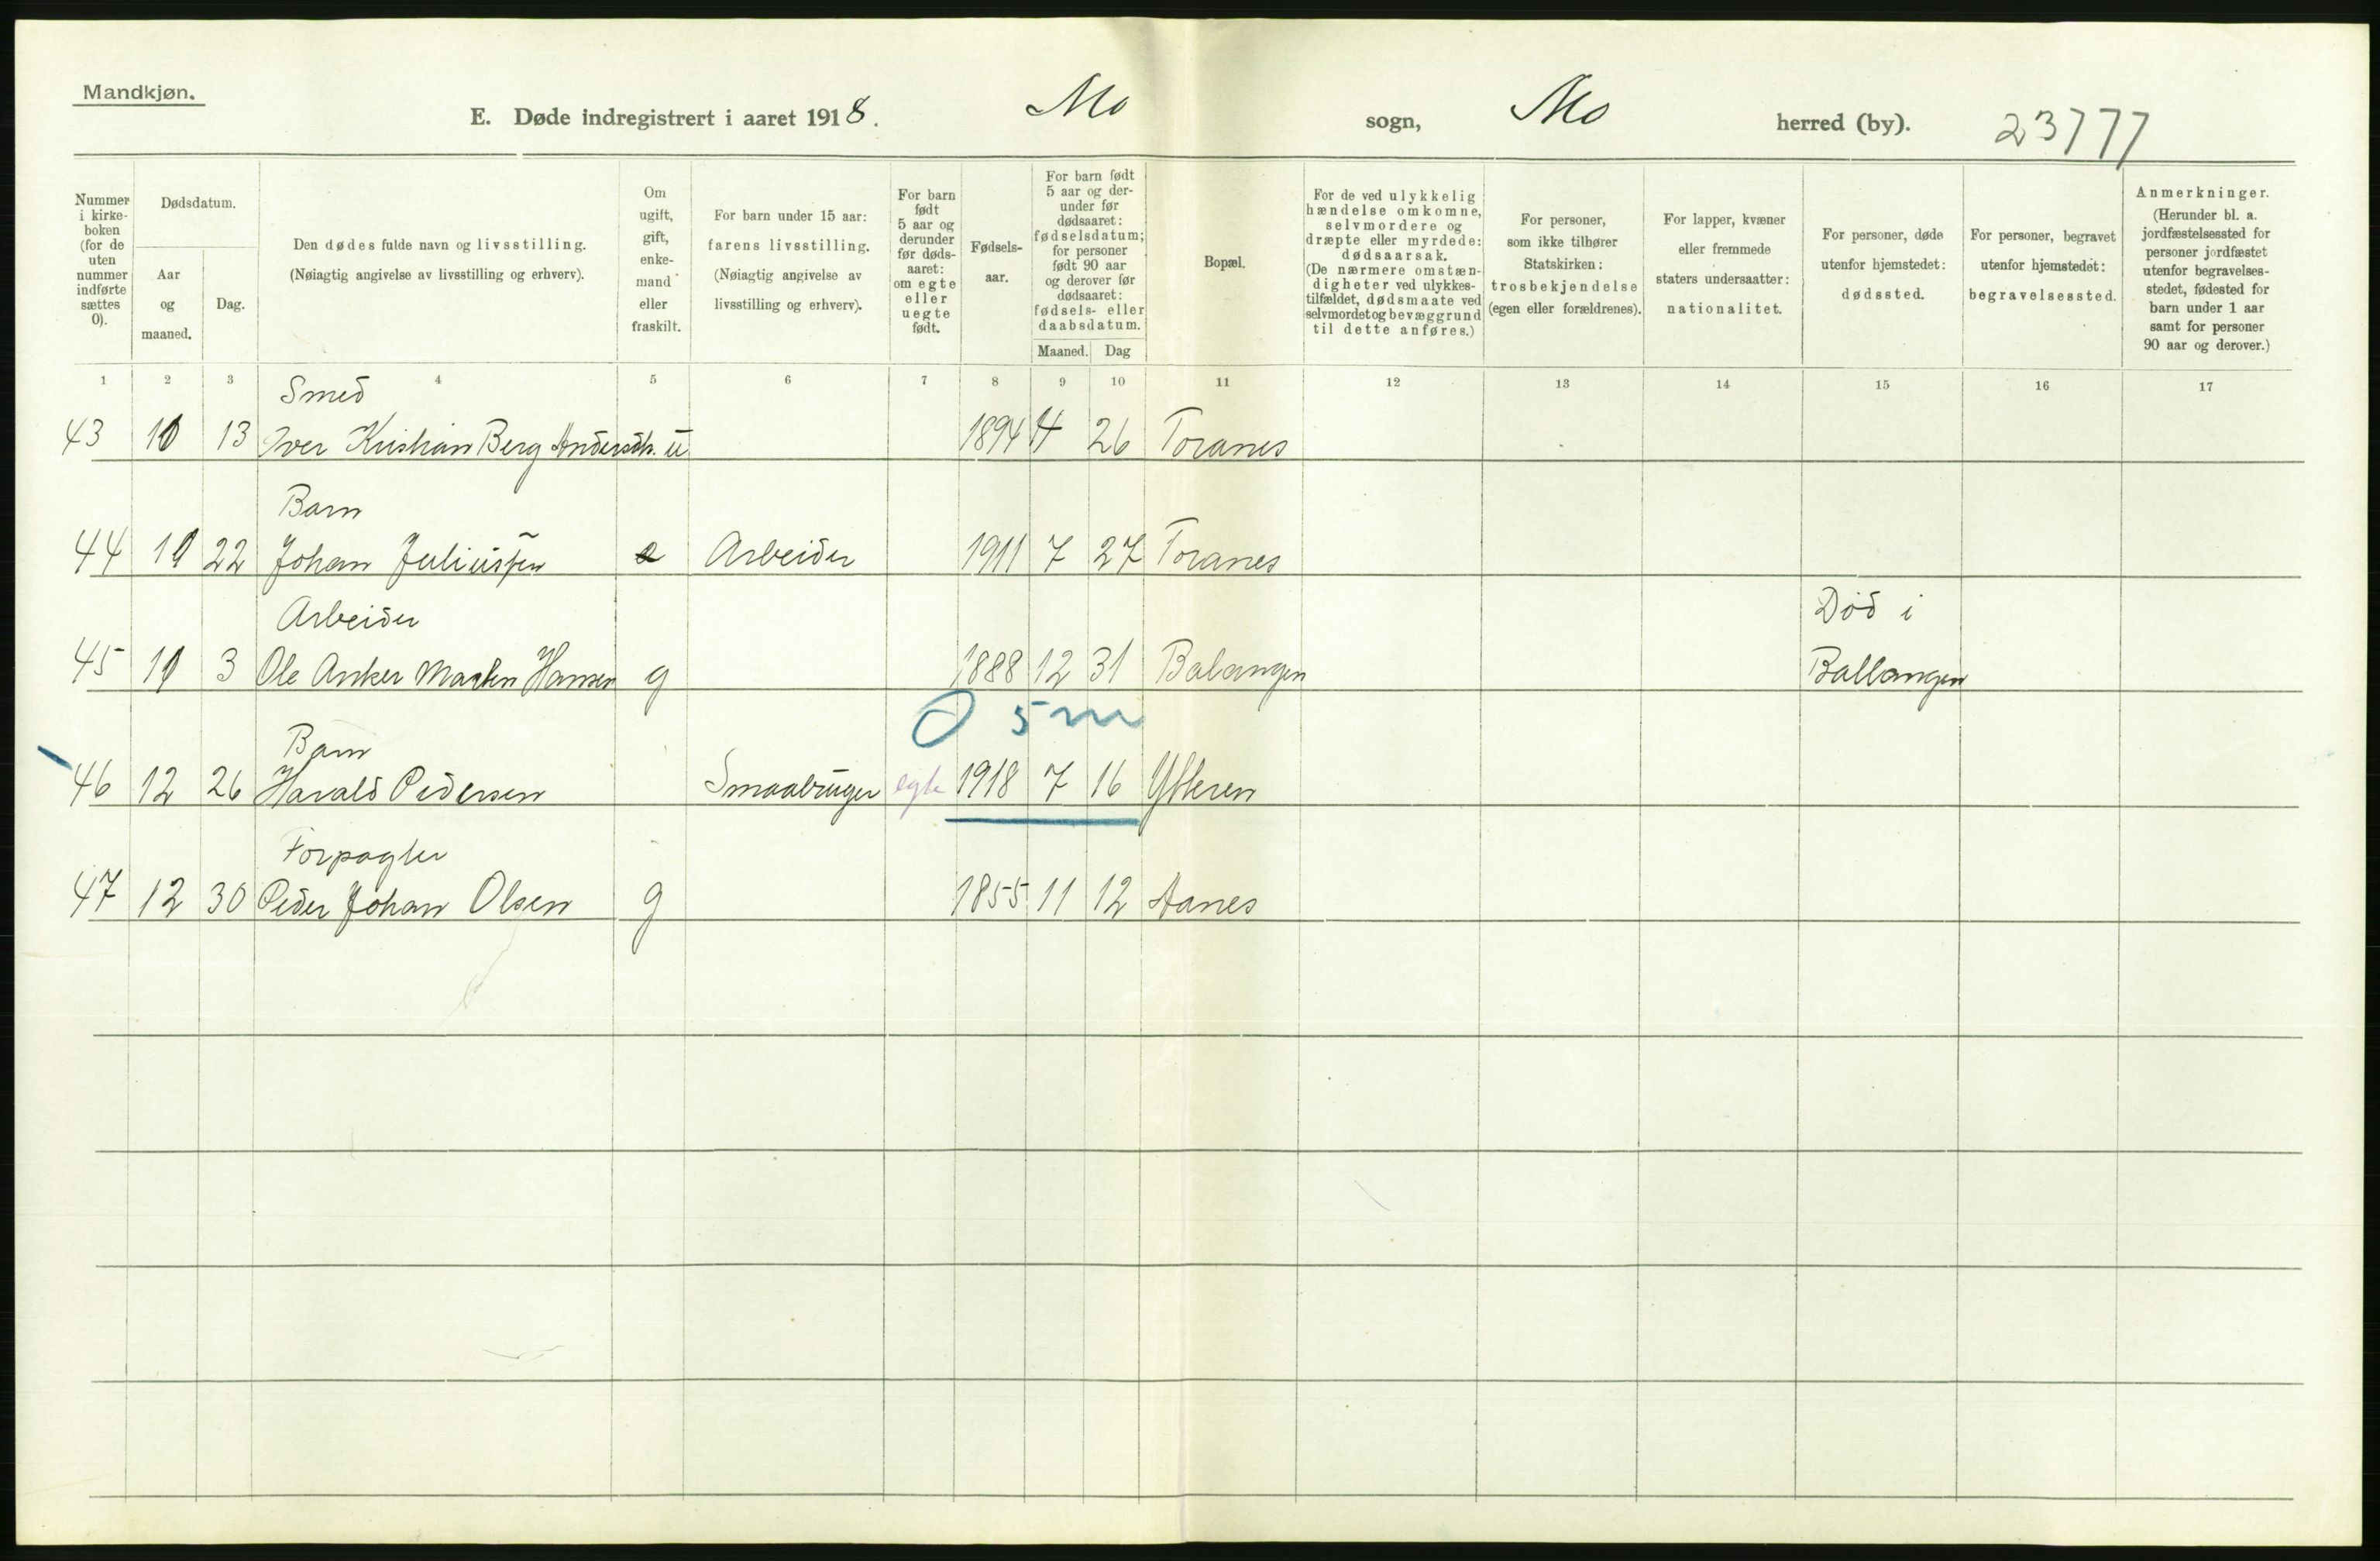 Mandkjøn.
E. Døde indregistrert i aaret 1918. Mo sogn, Mo herred (by). 23777
Nummer i kirke-boken (for de uten nummer indførte sættes 0).
Dødsdatum.
Aar og maaned.
Dag.
Den dødes fulde navn og livsstilling.
(Nøiagtig angivelse av livsstilling og erhverv).
Om ugift, gift, enke-mand eller fraskilt.
For barn under 15 aar:
farens livsstilling.
(Nøiagtig angivelse av
livsstilling og erhverv).
For barn født 5 aar og derunder før døds-aaret: om egte eller uegte født.
Fødsels-aar.
For barn født 5 aar og der-under før dødsaaret: fødselsdatum; for personer født 90 aar og derover før dødsaaret: fødsels- eller daabsdatum.
Maaned. Dag
Bopæl.
For de ved ulykkelig hændelse omkomne, selvmordere og dræpte eller myrdede: dødsaarsak. (De nærmere omstæn-digheter ved ulykkes-tilfældet, dødsmaate ved selvmordet og bevæggrund til dette anføres.)
For personer, som ikke tilhører Statskirken: trosbekjendelse (egen eller forældrenes).
For lapper, kvæner eller fremmede staters undersaatter: nationalitet.
For personer, døde utenfor hjemstedet: dødssted.
For personer, begravet utenfor hjemstedet: begravelsessted.
Anmerkninger.
(Herunder bl. a. jordfæstelsessted for personer jordfæstet utenfor begravelses-stedet, fødested for barn under 1 aar samt for personer 90 aar og derover.)
1 2 3 4 5 6 7 8 9 10 11 12 13 14 15 16 17
Smed
43 10 13 Iver Kristian Berg Andersen. u 1894 4 26 Toranes
Barn
44 22 Johan Juliussen Arbeider 1911 7 27 Toranes
Arbeider Død i
45 3 Ole Anker Martin Hansen g 1888 12 31 Balangen Ballangen
0 5 m
Barn
46 12 26 Harald Pedersen Smaabruger egte 1918 7 16 Ytteren
Forpagter
47 12 30 Peder Johan Olsen g 1855 11 12 Aanes